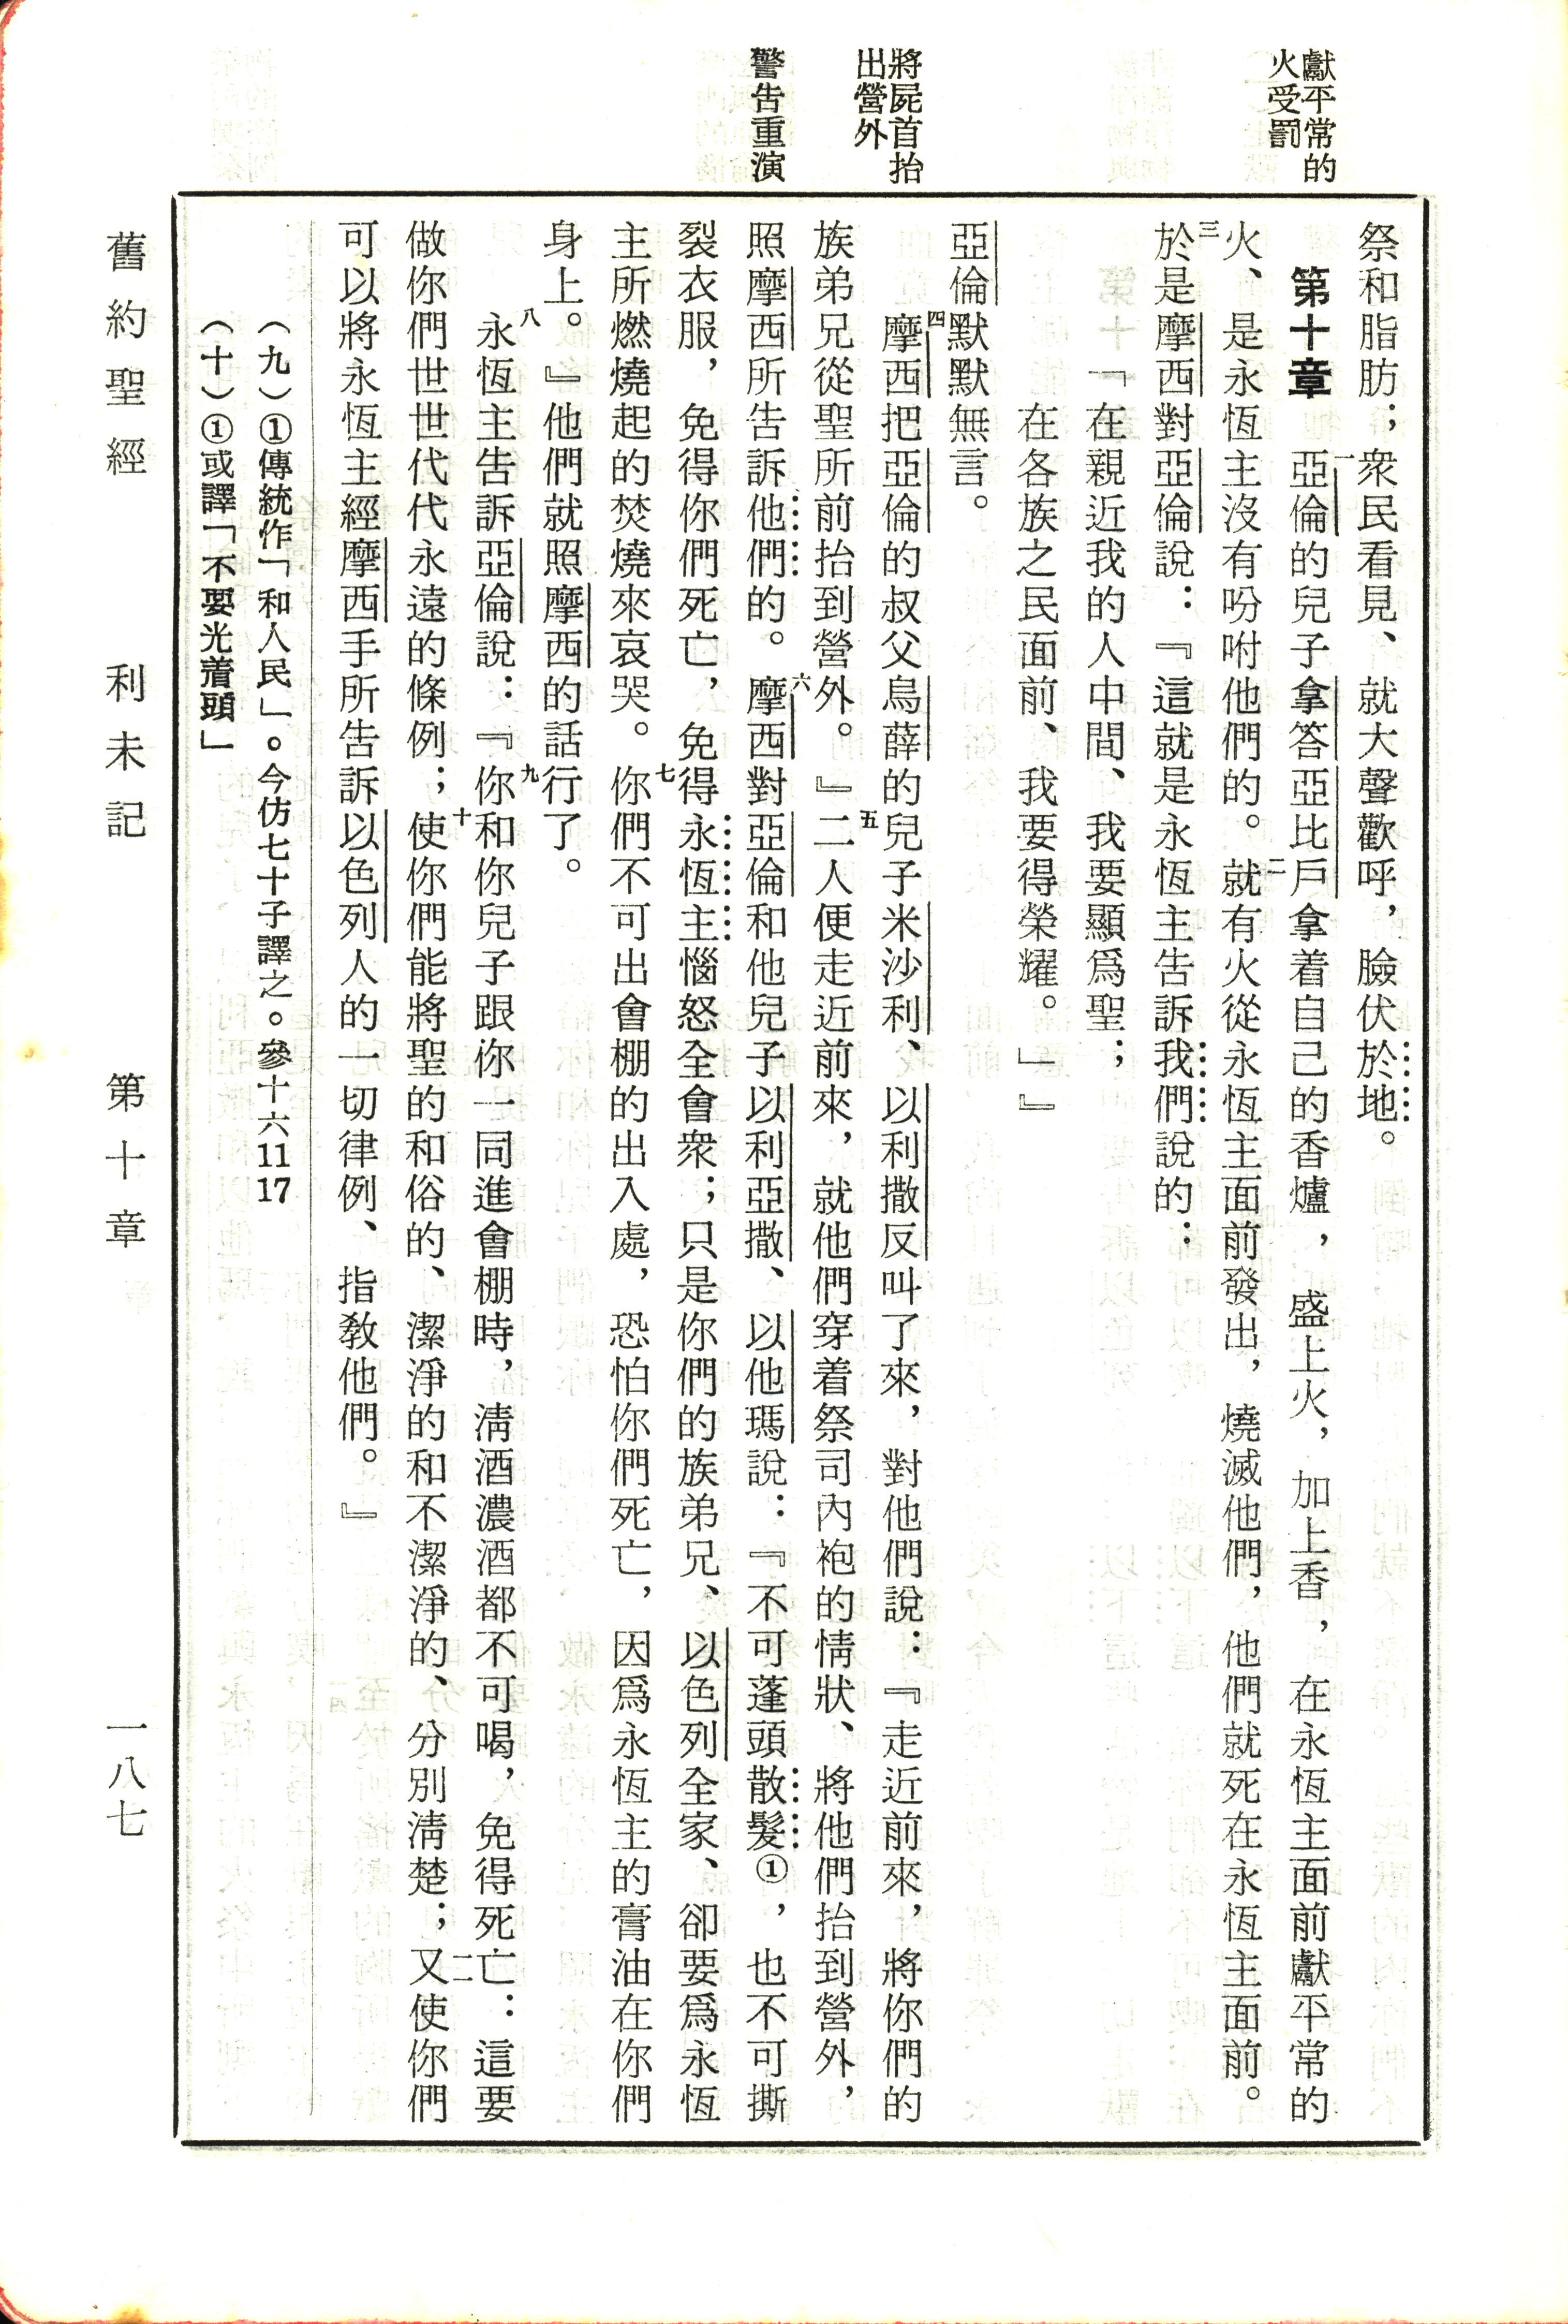 獻平常的
火受罰
將屍首抬
出營外
警告重演
祭和脂肪；衆民看見、就大聲歡呼，臉伏於地。
第十章 一亞倫的兒子拿答亞比戶拿着自己的香爐，盛上火，加上香，在永恆主面前獻平常的
火、是永恆主沒有吩咐他們的。二就有火從永恆主面前發出，燒滅他們，他們就死在永恆主面前。
三於是摩西對亞倫說：『這就是永恆主告訴我們說的：
「在親近我的人中間、我要顯爲聖；
在各族之民面前、我要得榮耀。」』
亞倫默默無言。
四摩西把亞倫的叔父烏薛的兒子米沙利、以利撒反叫了來，對他們說：『走近前來，將你們的
族弟兄從聖所前抬到營外。』五二人便走近前來，就他們穿着祭司內袍的情狀、將他們抬到營外，
照摩西所告訴他們的。六摩西對亞倫和他兒子以利亞撒、以他瑪說：『不可蓬頭散髮①，也不可撕
裂衣服，免得你們死亡，免得永恆主惱怒全會衆；只是你們的族弟兄、以色列全家、卻要爲永恆
主所燃燒起的焚燒來哀哭。七你們不可出會棚的出入處，恐怕你們死亡，因爲永恆主的膏油在你們
身上。』他們就照摩西的話行了。
八永恆主告訴亞倫說：『九你和你兒子跟你一同進會棚時，淸酒濃酒都不可喝，免得死亡：這要
做你們世世代代永遠的條例；十使你們能將聖的和俗的、潔淨的和不潔淨的、分別淸楚；一一又使你們
可以將永恆主經摩西手所告訴以色列人的一切律例、指敎他們。』
（九）①傳統作「和人民」。今仿七十子譯之。參十六11 17
（十）①或譯「不要光着頭」
舊約聖經 利未記 第十章 一八七